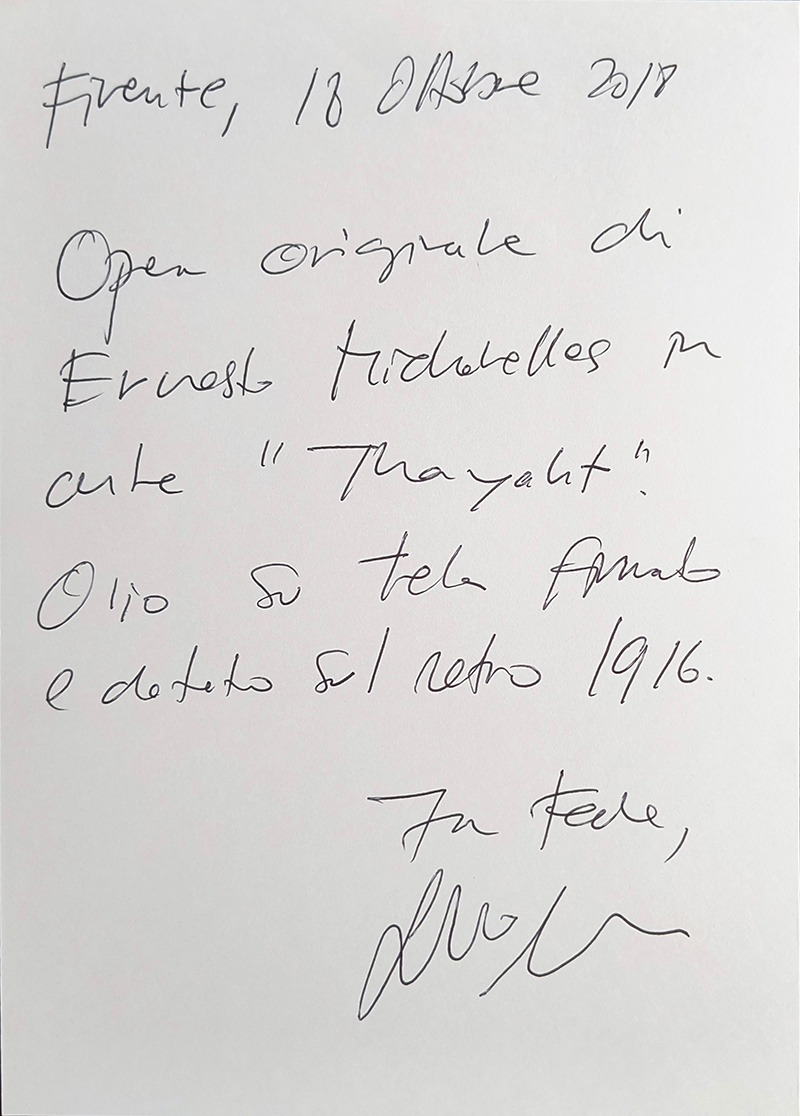 Firenze, 18 Ottobre 2018
Opera originale di
Ernesto Michahelles in
arte "Thayaht".
Olio su tela firmato
e datato sul retro 1916.
In Fede,